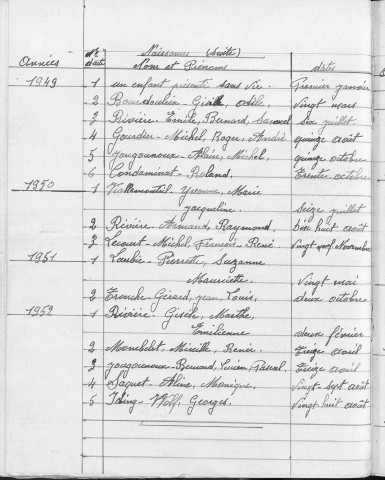 Naissances (Suite)
Années Nº d'acte Nom et Prénoms dates
1949 1 un enfant présenté sans vie. Premier janvier
2 Bourdoulein Gisèle, Odile, Vingt mars
3 Rivière Emile, Bernard, Samuel Six juillet
4 Gourdier Michel, Roger, André quinze août
5 Gougounoux Alain, Michel, quinze octobre
6 Condaminat Roland. Trente octobre
1950 1 Viallemonteil Yvonne, Marie
jacqueline. Seize juillet
2 Rivière Armand, Raymond, Dix huit août
3 Lecourt Michel, François René Vingt neuf Novembre
1951 1 Laubie Pierrette, Suzanne
Mauricette. Vingt mai
2 Tronche Gérard, jean Louis, deux octobre
1952 1 Rivière Gisèle, Marthe,
Emilienne deux février
2 Mombelet, Mireille, Renée. Treize avril
3 Gougounoux Bernard, Lucien, Pascal. Treize avril
4 Saquet Aline, Monique, Vingt-sept août
5 Wolf, Georges. Vingt huit août